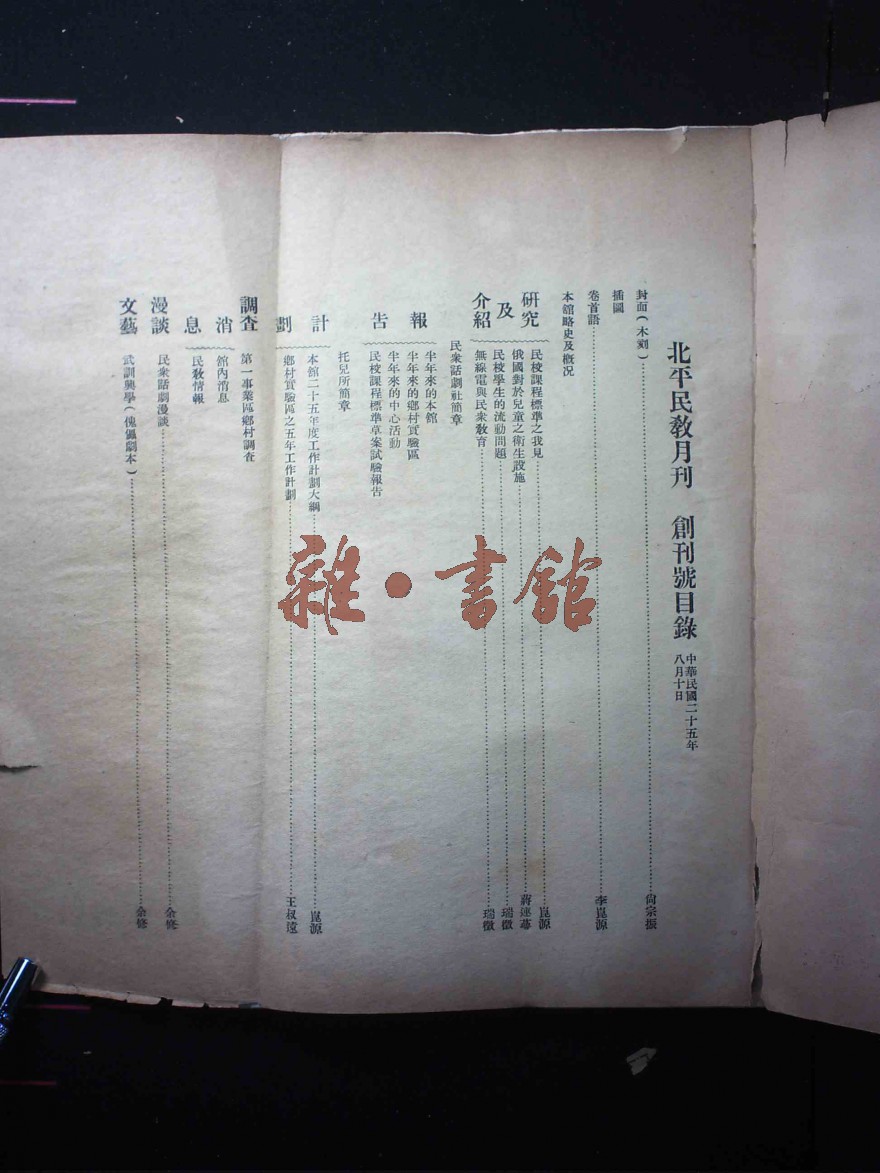 北平民教月刊 創刊號目錄
中華民國二十五年
八月十日
封面(木刻)……尙宗振
插圖
卷首語……李崑源
本館略史及槪況
研究及介紹
民校課程標準之我見……崑源
俄國對於兒童之衛生設施……蔣連蕚
民校學生的流動問題……瑞徵
無線電與民衆敎育……瑞徵
民衆話劇社簡章
報告
半年來的本館
半年來的鄉村實驗區
半年來的中心活動
民校課程標準草案試驗報告
托兒所簡章
計劃
本館二十五年度工作計劃大綱……崑源
鄉村實驗區之五年工作計劃……王叔遠
調查
第一事業區鄉村調查
消息
館內消息
民敎情報
漫談
民衆話劇漫談……余修
文藝
武訓興學(傀儡劇本)……余修
雜·書館